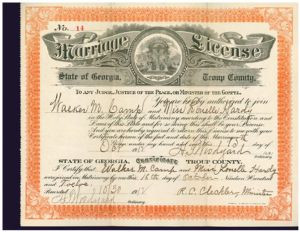 No. 14
Marriage License
State of Georgia, Troup County.
To any Judge, Justice of the Peace, or Minister of the Gospel.
You are hereby authorized to join
Walker M. Camp and Miss Ronelle Hardy
in the Holy State of Matrimony according to the Constitution and
Laws of this State and for so doing this shall be your License.
And you are hereby required to return this License with your
Certificate hereon of the fact and date of the Marriage
Given under my hand and seal this day of
Oct
STATE OF GEORGIA, Certificate TROUP COUNTY.
I Certify that Walker M. Camp and Miss Ronelle Hardy
were joined in Matrimony by me this 16th day of October Nineteen Hundred and
Twelve
10/30 1912 Minister